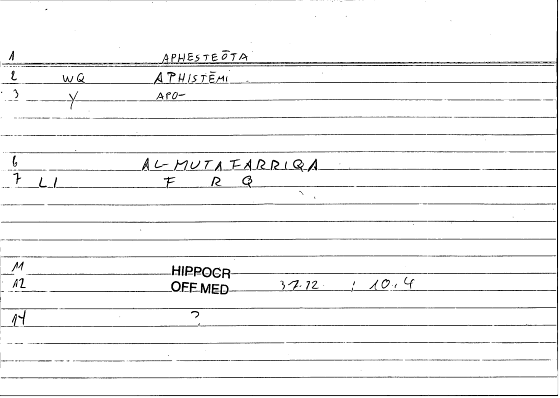 1 APHESTEŌTA
2 WQ APHISTĒMI
3 Y APO-
6 AL-MUTAFARRIQA
7 LI F R Q
11 HIPPOCR
12 OFF MED 37.12 : 10.4
14 ?